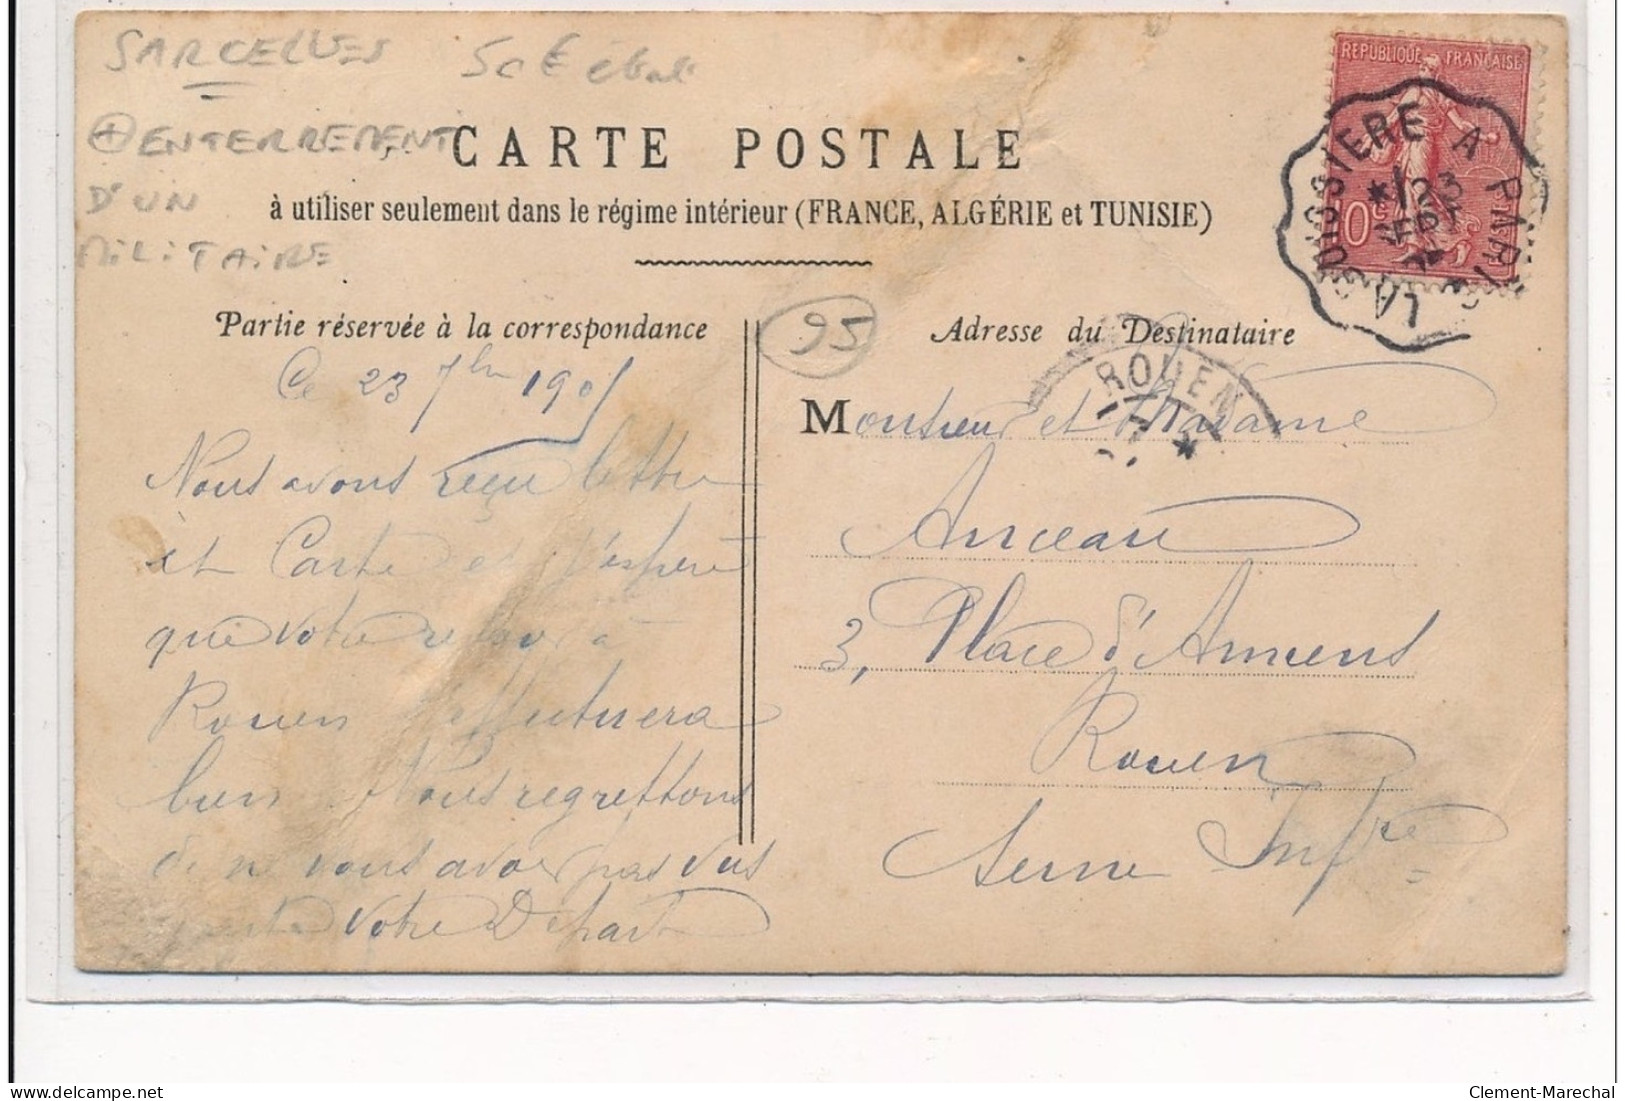 SARCELLES
ENTERREMENT
D'UN
MILITAIRE
CARTE POSTALE
à utiliser seulement dans le régime intérieur (FRANCE, ALGÉRIE et TUNISIE)
Partie réservée à la correspondance
95
Adresse du Destinataire
REPUBLIQUE FRANÇAISE
LA BOISSIERE A PARIS
ROUEN
Ce 23 7bre 190
Nous avons reçu lettre
et Carte et j'espère
que votre retour à
Rouen s'effectuera
bien Nous regrettons
de ne vous avoir pas vus
avant votre Départ
Monsieur et Madame
Anceau
3, Place d'Amiens
Rouen
Seine Infre
Clement-Marechal
delcampe.net